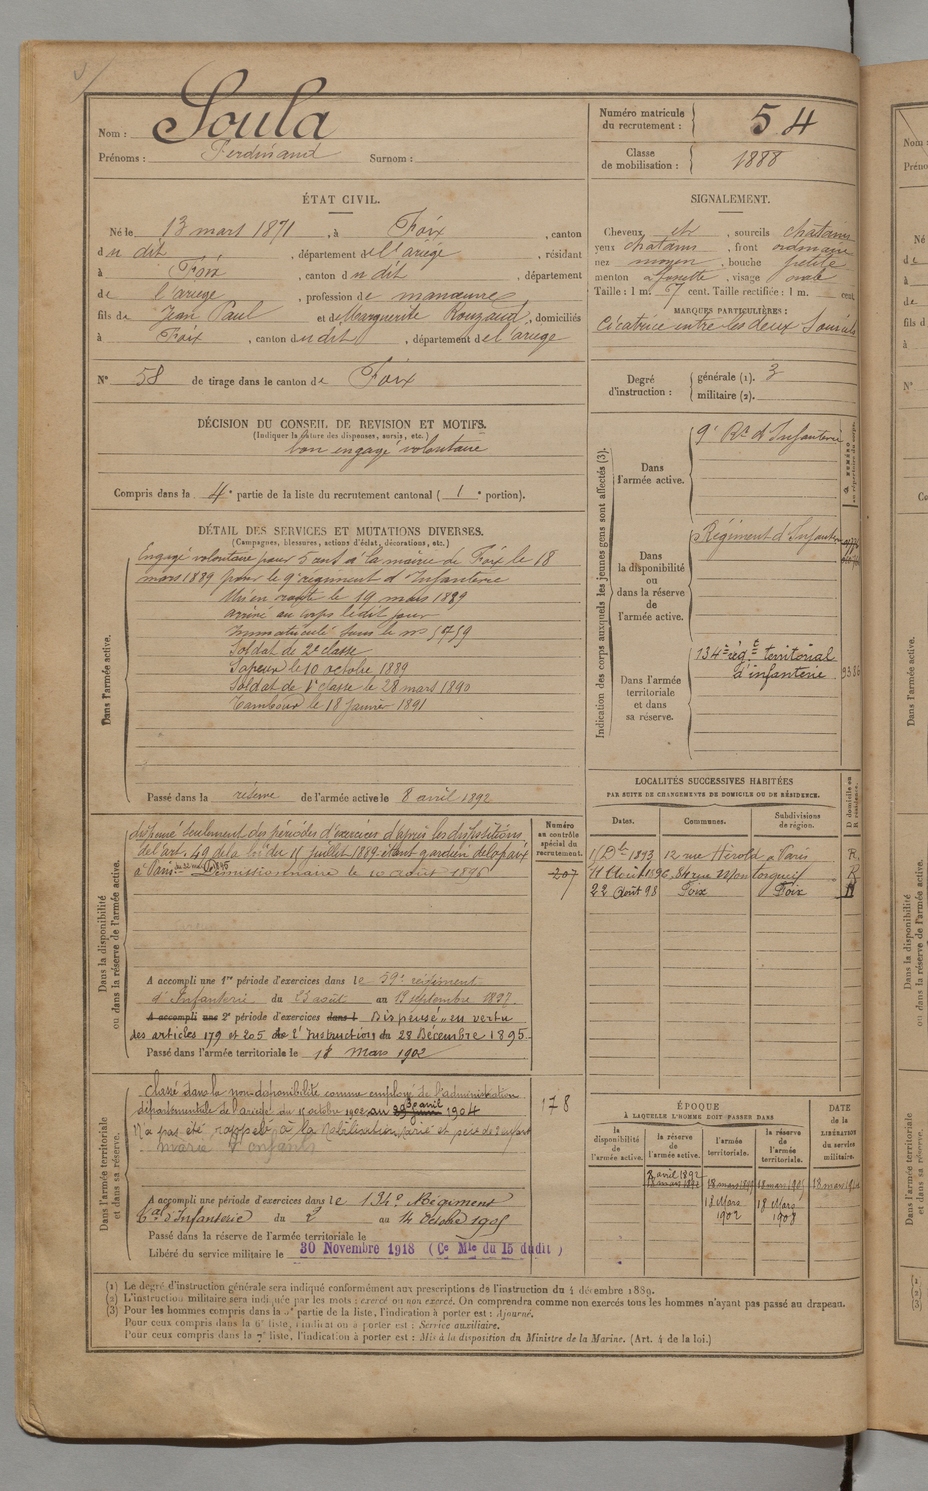 Nom : Soula
Prénoms : Ferdinand Surnom :
Numéro matricule du recrutement : 54
Classe de mobilisation : 1888
ÉTAT CIVIL.
Né le 13 mars 1871, à Foix, canton
du dit, département de l'ariège, résidant
à Foix, canton du dit, département
de l'ariege, profession de manœuvre
fils de Jean Paul et de Marguerite Rouzaud, domiciliés
à Foix, canton du dit, département de l'ariège
N° 58 de tirage dans le canton de Foix
SIGNALEMENT.
Cheveux et, sourcils chatains
yeux chatains, front ordinaire
nez moyen, bouche petite
menton a fossette, visage ovale
Taille : 1 m. 57 cent. Taille rectifiée : 1 m. cent.
MARQUES PARTICULIÈRES :
Cicatrice entre les deux Sourcils
Degré d'instruction : générale (1). 3
militaire (2).
DÉCISION DU CONSEIL DE REVISION ET MOTIFS.
(Indiquer la nature des dispenses, sursis, etc.)
bon engagé volontaire
Compris dans la 4e partie de la liste du recrutement cantonal ( 1 e portion).
DÉTAIL DES SERVICES ET MUTATIONS DIVERSES.
(Campagnes, blessures, actions d'éclat, décorations, etc.)
Dans l'armée active.
Engagé volontaire pour 5 ans à la mairie de Foix le 18
mars 1889 pour le 9e régiment d'Infanterie
Mis en route le 19 mars 1889
arrivé au corps ledit jour
Immatriculé sous le no 5759
Soldat de 2e classe
Sapeur le 10 octobre 1889
Soldat de 1e classe le 28 mars 1890
Tambour le 18 Janvier 1891
Passé dans la réserve de l'armée active le 8 avril 1892
Indication des corps auxquels les jeunes gens sont affectés (3).
Dans l'armée active.
9e Rt d'Infanterie
Dans la disponibilité ou dans la réserve de l'armée active.
Régiment d'Infanterie
Dans l'armée territoriale et dans sa réserve.
134e régt territorial
d'infanterie
LOCALITÉS SUCCESSIVES HABITÉES
PAR SUITE DE CHANGEMENTS DE DOMICILE OU DE RÉSIDENCE.
Dates. Communes. Subdivisions de région. D domicile ou R résidence.
1893 12 rue Hérold à Paris R
Août 1896 84 rue R
22 Août 98 Foix Foix
Dans la disponibilité ou dans la réserve de l'armée active.
Numéro au contrôle spécial du recrutement.
dispensé seulement des périodes d'exercices d'après les dispositions
de l'art. 49 de la loi du 15 juillet 1889 étant gardien de la paix
à Paris Démissionnaire le 10 août 1896
207
A accompli une 1re période d'exercices dans le 59e régiment
d'Infanterie du 23 août au 19 septembre 1897
A accompli une 2e période d'exercices dans l Dispensé en vertu
des articles 179 et 205 de l'Instruction du 28 Décembre 1895
Passé dans l'armée territoriale le 18 mars 1902
Dans l'armée territoriale et dans sa réserve.
Classé dans la non-disponibilité comme employé de l'administration
départementale de l'ariège du 15 octobre 1902 au 30 avril 1904
178
N'a pas été rappelé à la mobilisation, marié et père de 2 enfants
marié enfants
A accompli une période d'exercices dans le 134e Régiment
tal d'Infanterie du 2 au 14 Octobre 1905
Passé dans la réserve de l'armée territoriale le
Libéré du service militaire le 30 Novembre 1918 (Ce Mle du 15 dudit)
ÉPOQUE
À LAQUELLE L'HOMME DOIT PASSER DANS
DATE de la LIBÉRATION du service militaire.
la disponibilité de l'armée active. la réserve de l'armée active. l'armée territoriale. la réserve de l'armée territoriale.
8 avril 1892
18 mars 1892
18 Mars 1902 18 Mars 1908
(1) Le degré d'instruction générale sera indiqué conformément aux prescriptions de l'instruction du 4 décembre 1889.
(2) L'instruction militaire sera indiquée par les mots : exercé ou non exercé. On comprendra comme non exercés tous les hommes n'ayant pas passé au drapeau.
(3) Pour les hommes compris dans la 5e partie de la liste, l'indication à porter est : Ajourné.
Pour ceux compris dans la 6e liste, l'indication à porter est : Service auxiliaire.
Pour ceux compris dans la 7e liste, l'indication à porter est : Mis à la disposition du Ministre de la Marine. (Art. 4 de la loi.)